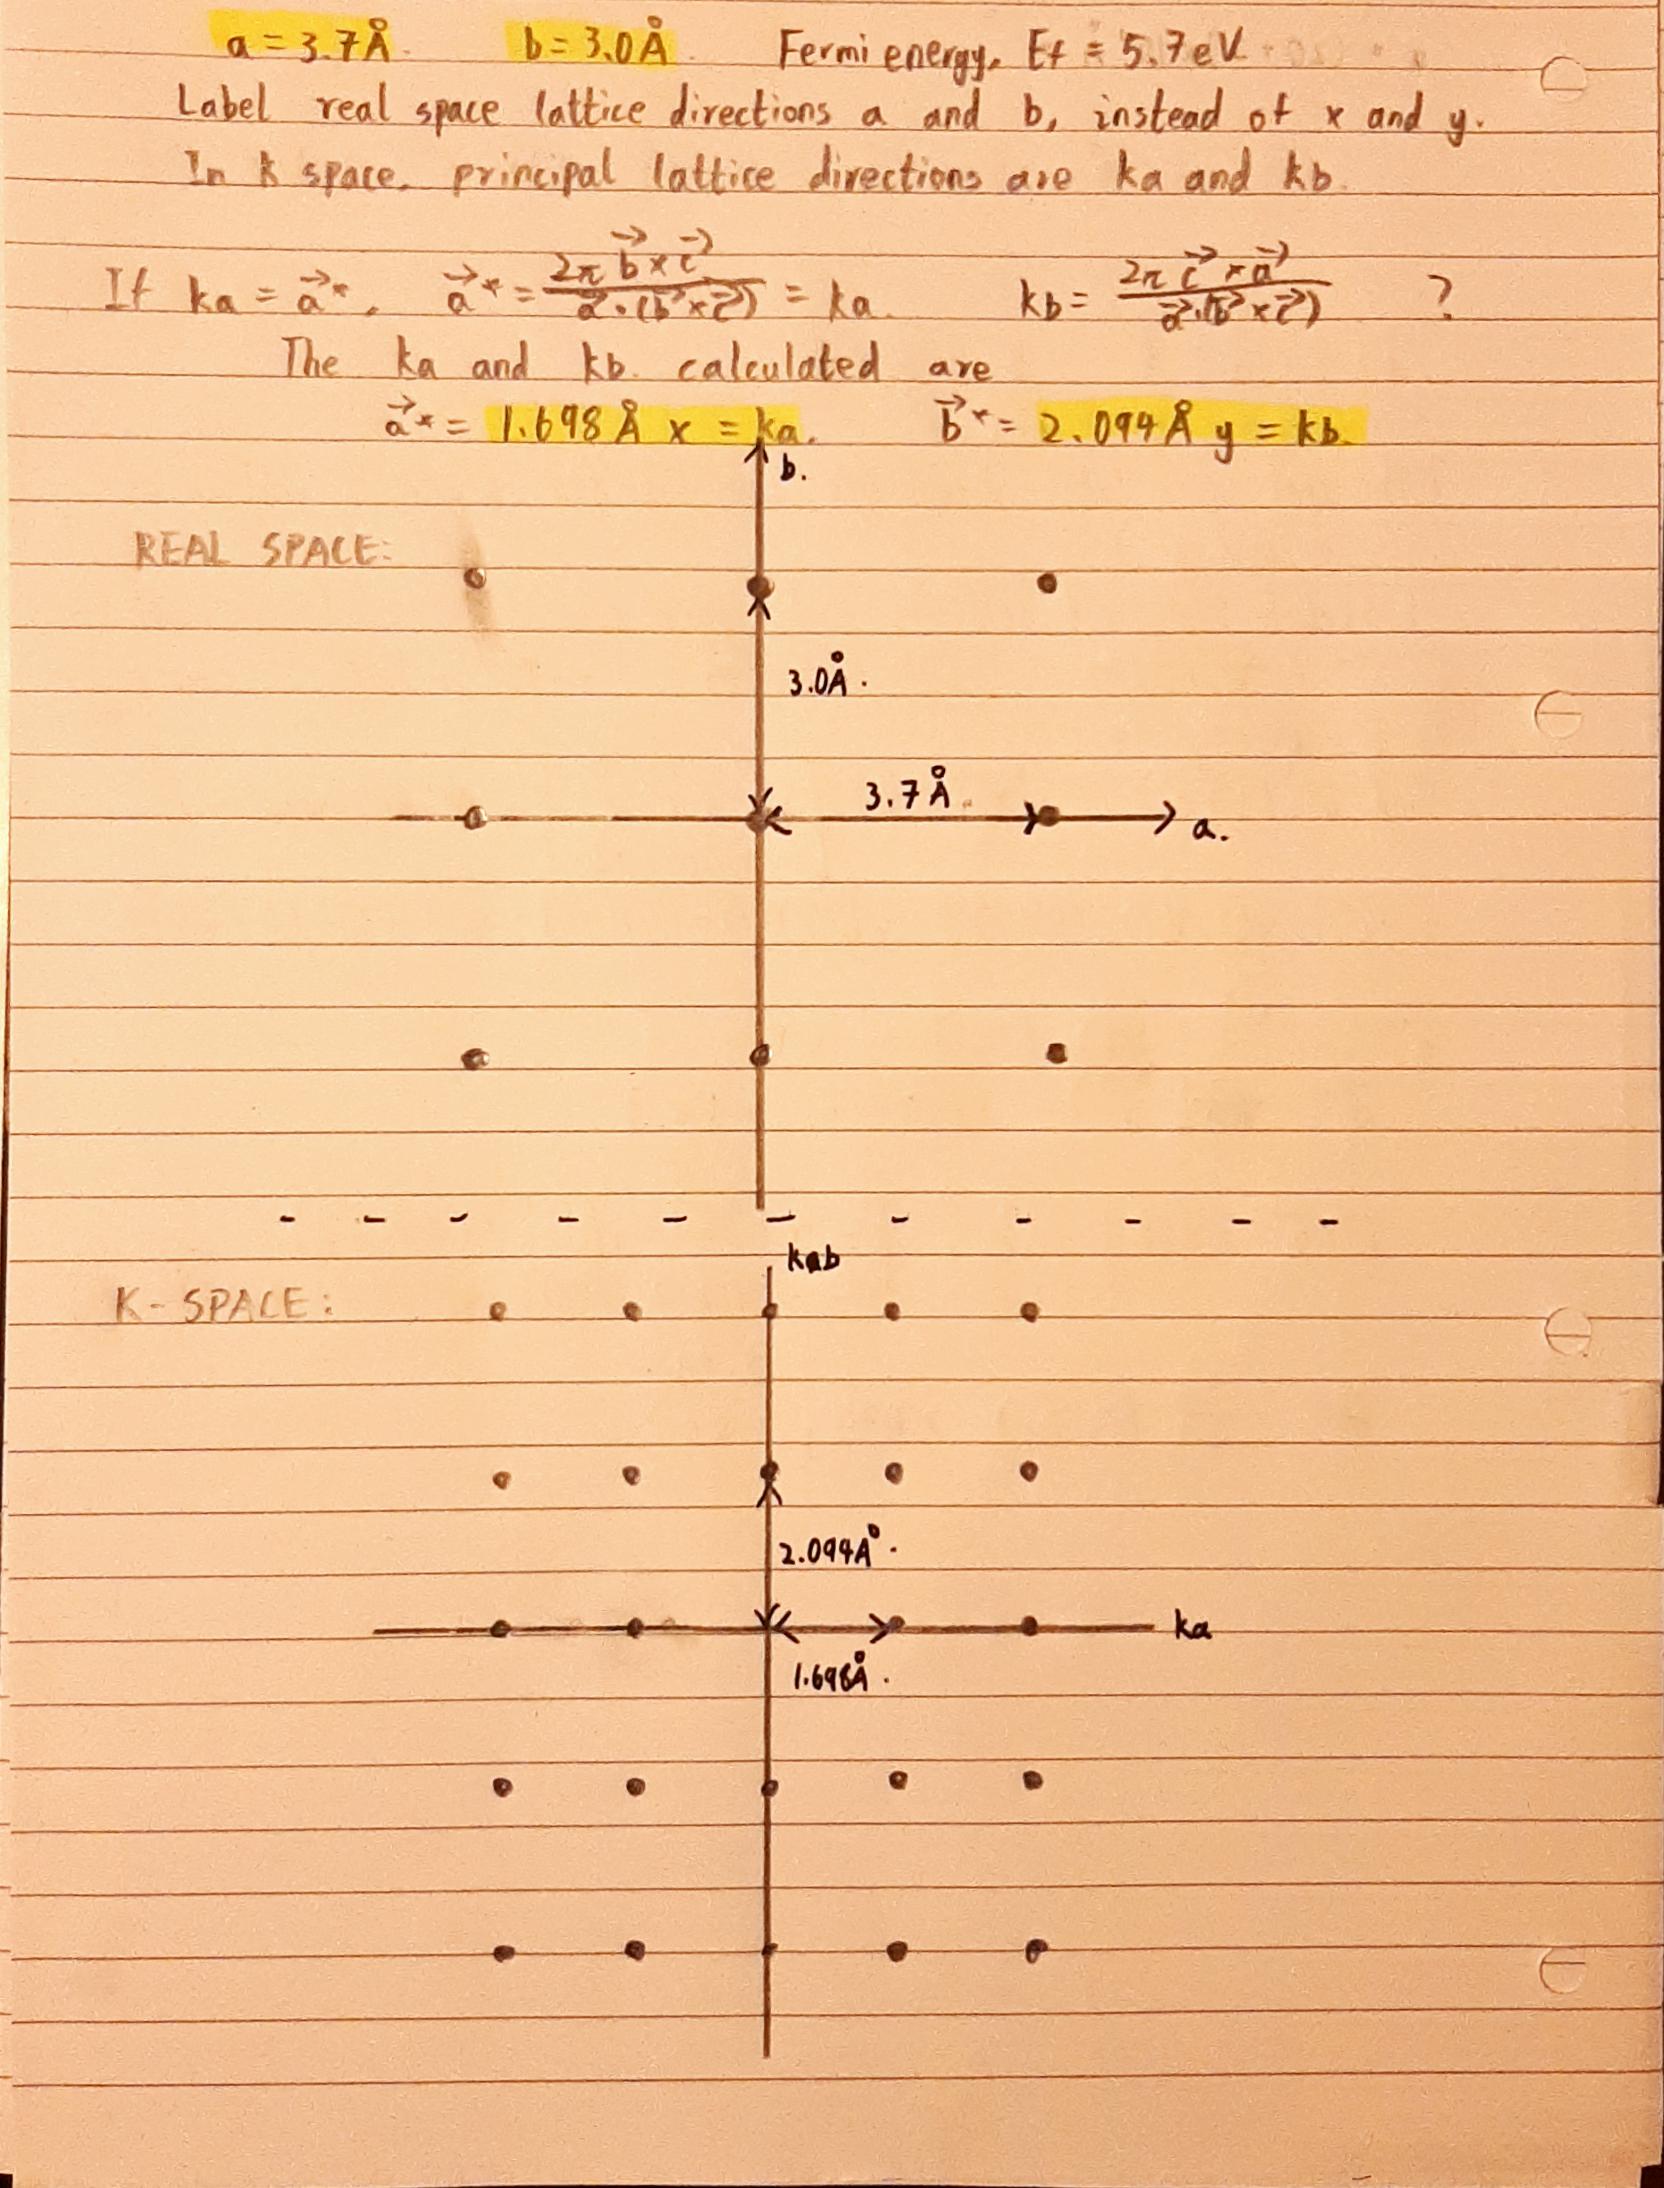 a = 3.7Å. b = 3.0Å. Fermi energy, Ef = 5.7eV
Label real space lattice directions a and b, instead of x and y.
In k space, principal lattice directions are ka and kb.
If ka = a⃗*, a⃗* = 2π b⃗ × c⃗ / a⃗·(b⃗ × c⃗) = ka. kb = 2π c⃗ × a⃗ / a⃗·(b⃗ × c⃗) ?
The ka and kb. calculated are
a⃗* = 1.698 Å x = ka. b⃗* = 2.094 Å y = kb.
b.
REAL SPACE:
3.0Å.
3.7Å.
a.
K-SPACE:
2.094Å.
ka
1.698Å.